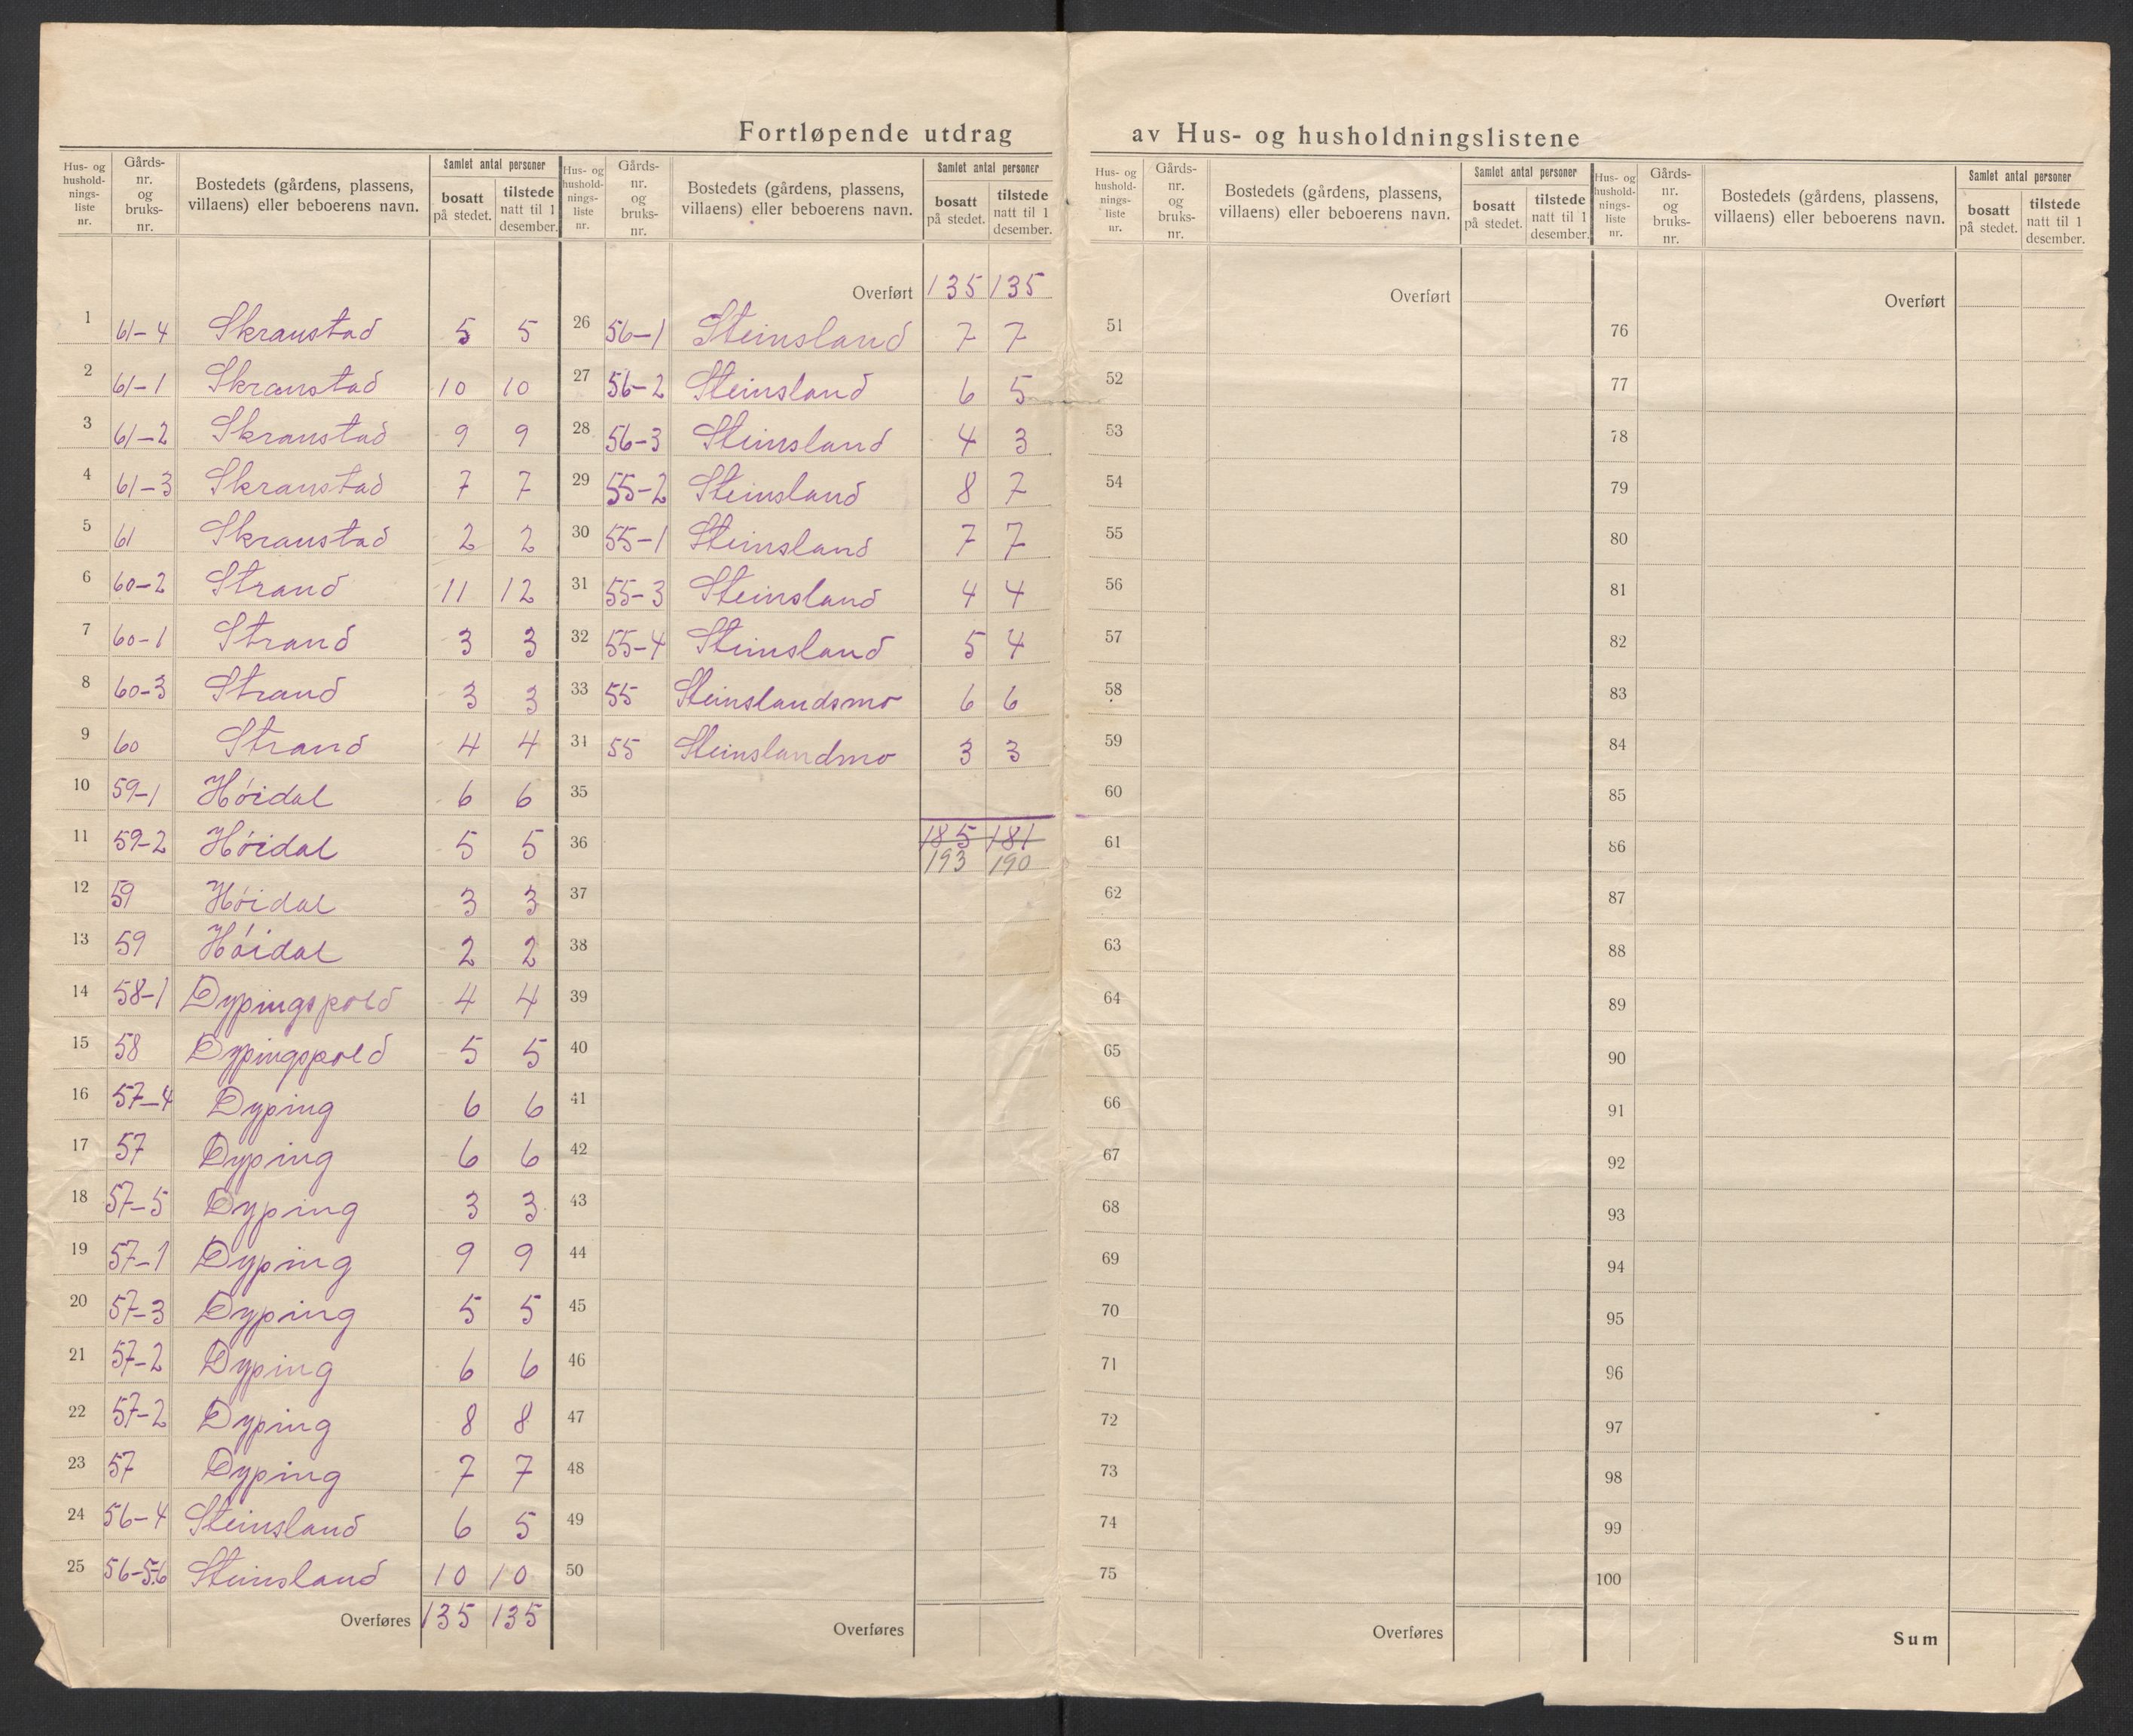 Fortløpende utdrag av Hus- og husholdningslistene
Hus- og hushold-nings-liste nr. Gårds-nr. og bruks-nr. Bostedets (gårdens, plassens, villaens) eller beboerens navn. Samlet antal personer bosatt på stedet. tilstede natt til 1 desember.
1 61-4 Skraustad 5 5
2 61-1 Skraustad 10 10
3 61-2 Skraustad 9 9
4 61-3 Skraustad 7 7
5 61 Skraustad 2 2
6 60-2 Strand 11 12
7 60-1 Strand 3 3
8 60-3 Strand 3 3
9 60 Strand 4 4
10 59-1 Höidal 6 6
11 59-2 Höidal 5 5
12 59 Höidal 3 3
13 59 Höidal 2 2
14 58-1 Dypingspold 4 4
15 58 Dypingspold 5 5
16 57-4 Dyping 6 6
17 57 Dyping 6 6
18 57-5 Dyping 3 3
19 57-1 Dyping 9 9
20 57-3 Dyping 5 5
21 57-2 Dyping 6 6
22 57-2 Dyping 8 8
23 57 Dyping 7 7
24 56-4 Steinsland 6 5
25 56-5.6 Steinsland 10 10
Overføres 135 135
Hus- og hushold-nings-liste nr. Gårds-nr. og bruks-nr. Bostedets (gårdens, plassens, villaens) eller beboerens navn. Samlet antal personer bosatt på stedet. tilstede natt til 1 desember.
Overført 135 135
26 56-1 Steinsland 7 7
27 56-2 Steinsland 6 5
28 56-3 Steinsland 4 3
29 55-2 Steinsland 8 7
30 55-1 Steinsland 7 7
31 55-3 Steinsland 4 4
32 55-4 Steinsland 5 4
33 55 Steinslandsmo 6 6
34 55 Steinslandmo 3 3
35
36 185 181
193 190
37
38
39
40
41
42
43
44
45
46
47
48
49
50
Overføres
Hus- og hushold-nings-liste nr. Gårds-nr. og bruks-nr. Bostedets (gårdens, plassens, villaens) eller beboerens navn. Samlet antal personer bosatt på stedet. tilstede natt til 1 desember.
Overført
51
52
53
54
55
56
57
58
59
60
61
62
63
64
65
66
67
68
69
70
71
72
73
74
75
Overføres
Hus- og hushold-nings-liste nr. Gårds-nr. og bruks-nr. Bostedets (gårdens, plassens, villaens) eller beboerens navn. Samlet antal personer bosatt på stedet. tilstede natt til 1 desember.
Overført
76
77
78
79
80
81
82
83
84
85
86
87
88
89
90
91
92
93
94
95
96
97
98
99
100
Sum